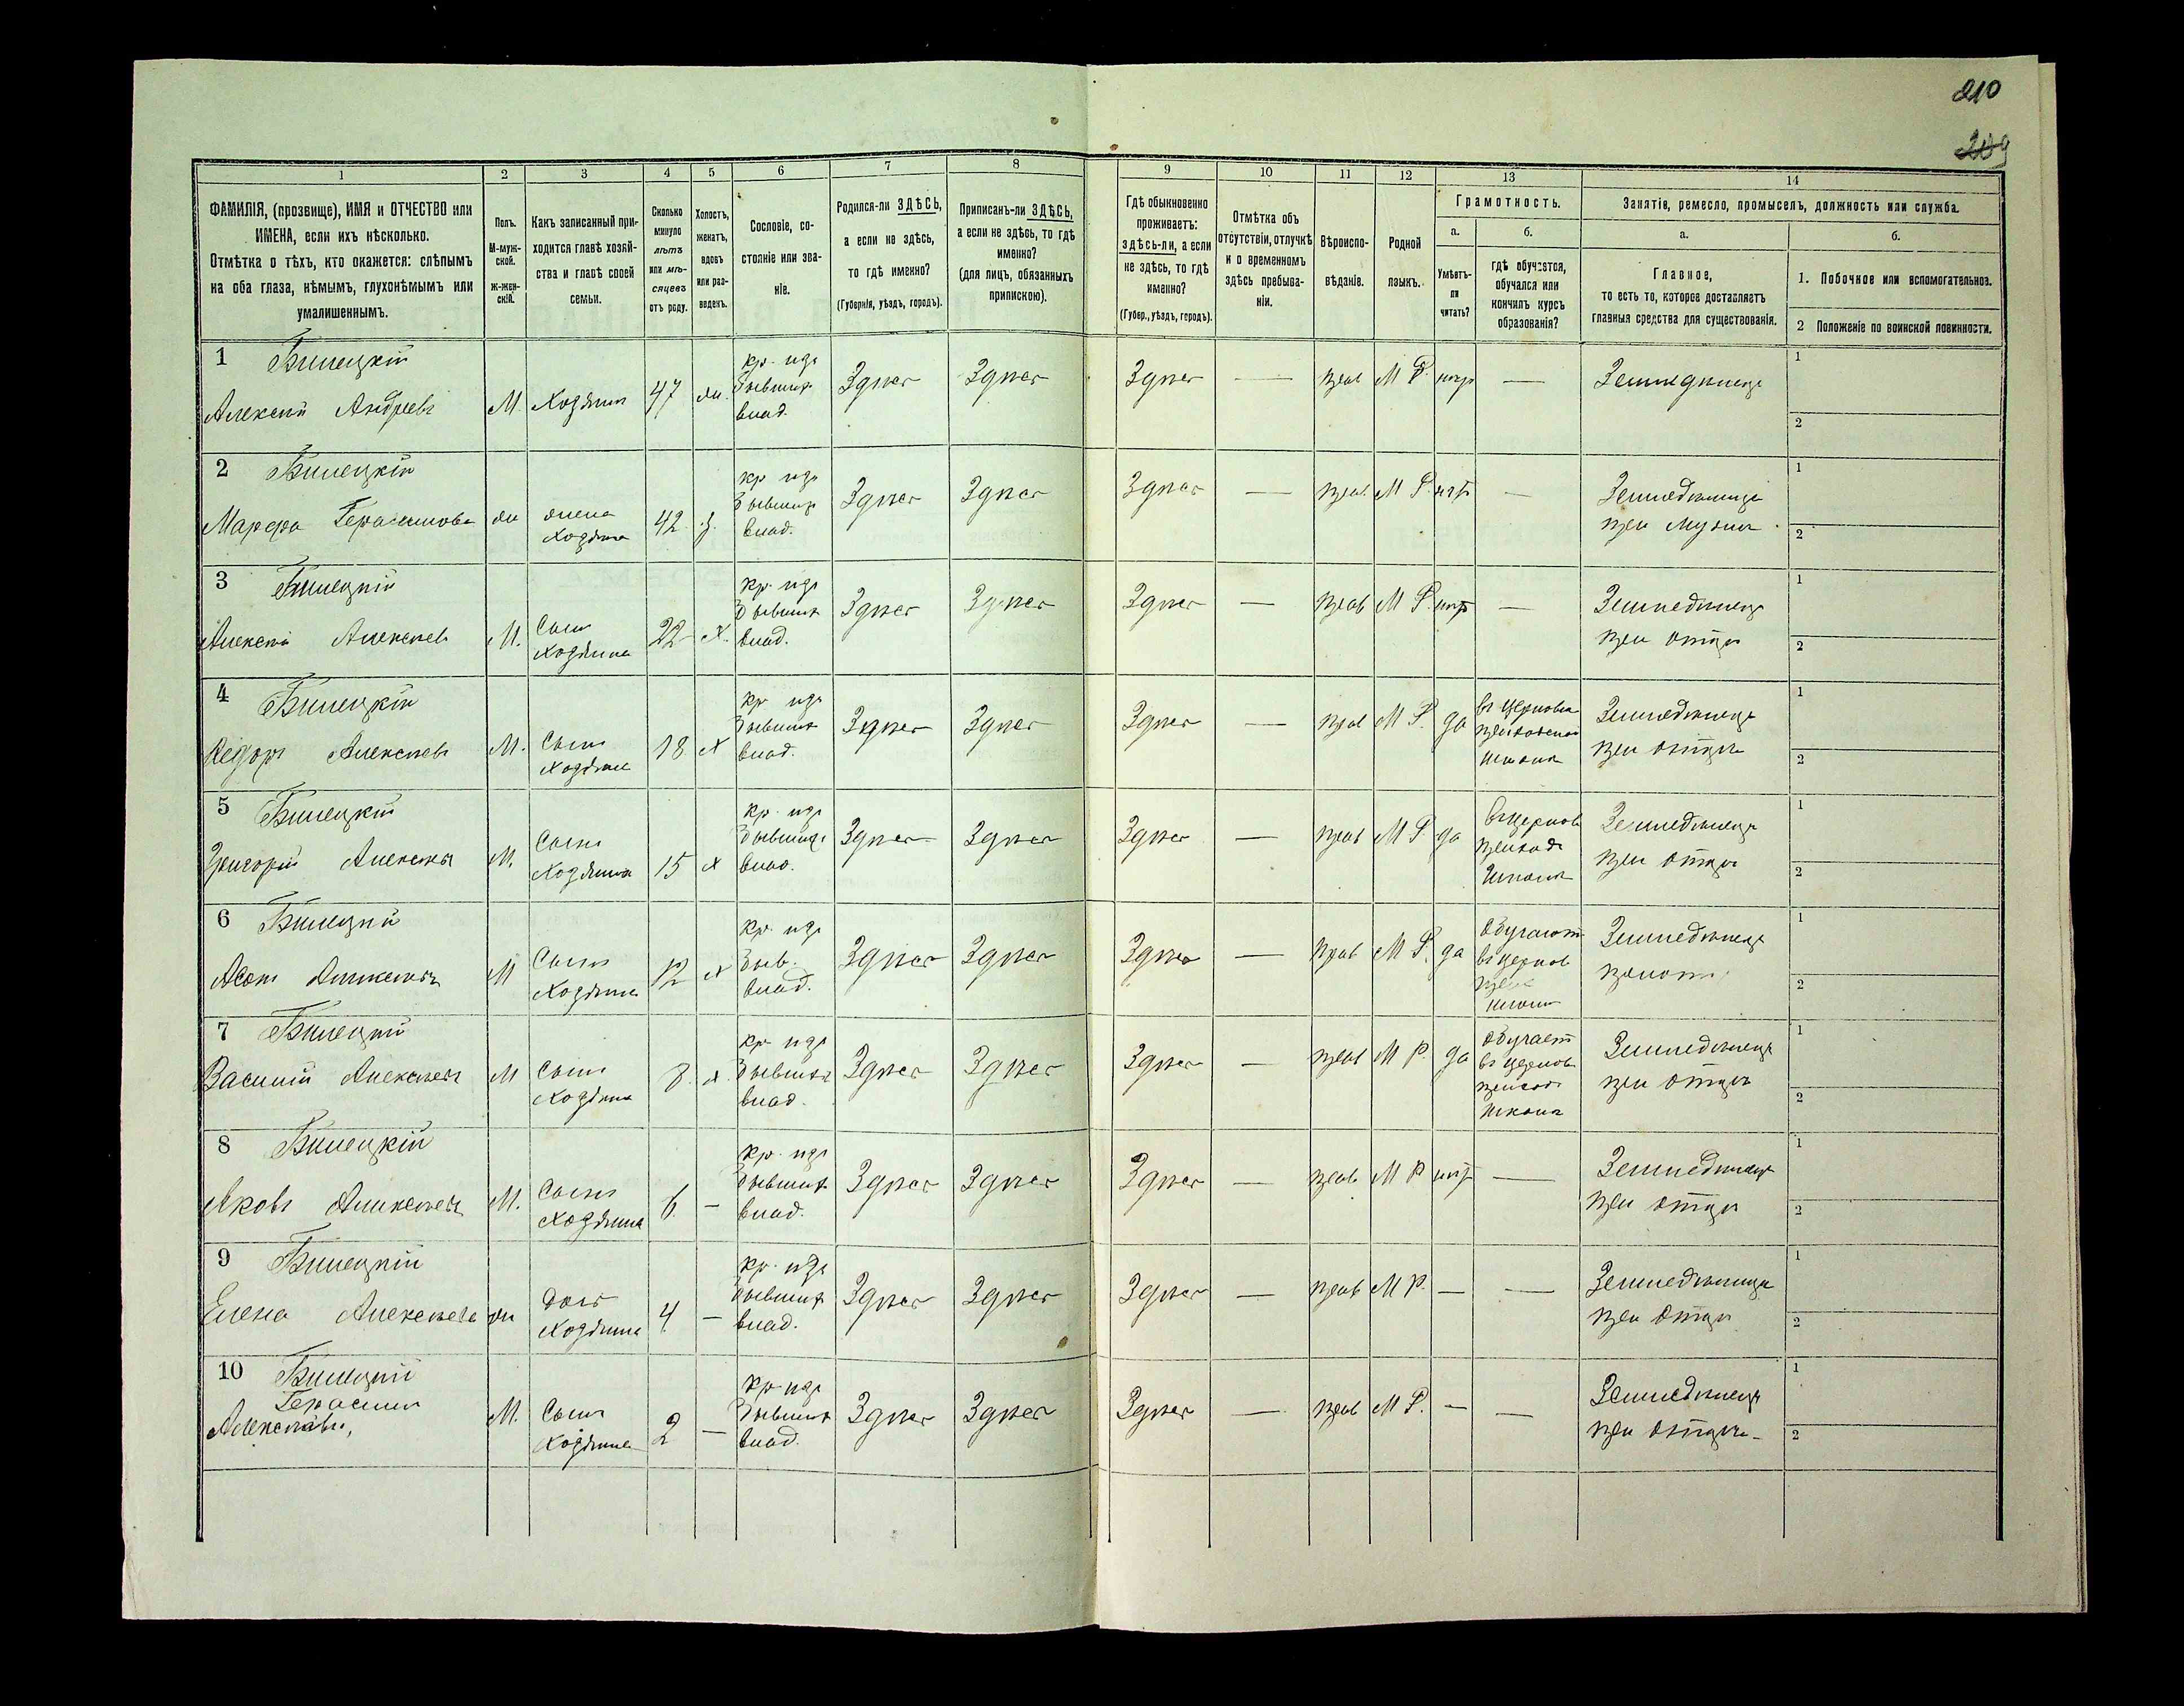 210
209
1
2
3
4
5
6
7
8
9
10
11
12
13
14
ФАМИЛІЯ, (прозвище), ИМЯ и ОТЧЕСТВО или
ИМЕНА, если ихъ нѣсколько.
Отмѣтка о тѣхъ, кто окажется: слѣпымъ
на оба глаза, нѣмымъ, глухонѣмымъ или
умалишеннымъ.
Полъ.
М-муж-
ской.
ж-жен-
скій.
Какъ записанный при-
ходится главѣ хозяй-
ства и главѣ своей
семьи.
Сколько
минуло
лѣтъ
или мѣ-
сяцевъ
отъ роду.
Холостъ,
женатъ,
вдовъ
или раз-
веденъ.
Сословіе, со-
стояніе или зва-
ніе.
Родился-ли ЗДѢСЬ,
а если не здѣсь,
то гдѣ именно?
(Губернія, уѣздъ, городъ).
Приписанъ-ли ЗДѢСЬ,
а если не здѣсь, то гдѣ
именно?
(для лицъ, обязанныхъ
припискою).
Гдѣ обыкновенно
проживаетъ:
здѣсь-ли, а если
не здѣсь, то гдѣ
именно?
(Губер., уѣздъ, городъ).
Отмѣтка объ
отсутствіи, отлучкѣ
и о временномъ
здѣсь пребыва-
ніи.
Вѣроиспо-
вѣданіе.
Родной
языкъ.
Грамотность.
а.
Умѣетъ-
ли
читать?
б.
гдѣ обучается,
обучался или
кончилъ курсъ
образованія?
Занятіе, ремесло, промыселъ, должность или служба.
а.
Главное,
то есть то, которое доставляетъ
главныя средства для существованія.
б.
1. Побочное или вспомогательное.
2 Положеніе по воинской повинности.
1 Билецкій
Алексѣй Андреевъ
М. Хозяинъ 47 жн.
кр. изъ
бывшихъ
влад.
Здѣсь Здѣсь Здѣсь — прав М Р. нѣтъ — Земледѣлецъ
1
2
2 Билецкій
Марфа Герасимова
жн жена
хозяина
42 з.
кр изъ
бывшихъ
влад.
Здѣсь Здѣсь Здѣсь — прав. М Р. нѣтъ —
Земледѣлица
при мужѣ
1
2
3 Билецкій
Алексѣй Алексѣевъ
М. Сынъ
хозяина
22 х.
кр. изъ
бывшихъ
влад.
Здѣсь Здѣсь Здѣсь — прав М Р. нѣтъ —
Земледѣлецъ
при отцѣ
1
2
4 Билецкій
Ѳедоръ Алексѣевъ
М. Сынъ
хозяина
18 х
кр изъ
бывшихъ
влад.
Здѣсь Здѣсь Здѣсь — прав М Р. да
въ церковно
приходской
школѣ
Земледѣлецъ
при отцѣ
1
2
5 Билецкій
Григорій Алексѣевъ
М. Сынъ
хозяина
15 х
кр. изъ
бывшихъ
влад.
Здѣсь Здѣсь Здѣсь — прав М Р. да
въ церков
приход
школѣ
Земледѣлецъ
при отцѣ
1
2
6 Билецкій
Алексѣевъ
М Сынъ
хозяина
12 х
кр. изъ
быв.
влад.
Здѣсь Здѣсь Здѣсь — прав М Р. да
обучает
въ церков
школѣ
Земледѣлецъ
1
2
7 Билецкій
Василій Алексѣевъ
М Сынъ
хозяина
8. х.
кр изъ
бывшихъ
влад.
Здѣсь Здѣсь Здѣсь — прав М Р. да
обучает
въ церков
приход
школѣ
Земледѣлецъ
при отцѣ
1
2
8 Билецкій
Яковъ Алексѣевъ
М. Сынъ
хозяина
6. —
кр. изъ
бывшихъ
влад.
Здѣсь Здѣсь Здѣсь — прав М Р нѣтъ —
Земледѣлецъ
при отцѣ
1
2
9 Билецкій
Елена Алексѣева
жн дочь
хозяина
4. —
кр. изъ
бывшихъ
влад.
Здѣсь Здѣсь Здѣсь — прав М Р. — —
Земледѣлица
при отцѣ
1
2
10 Билецкій
Герасимъ
Алексѣевъ,
М. Сынъ
хозяина
2 —
кр изъ
бывшихъ
влад.
Здѣсь Здѣсь Здѣсь — прав М Р. — —
Земледѣлецъ
при отцѣ
1
2